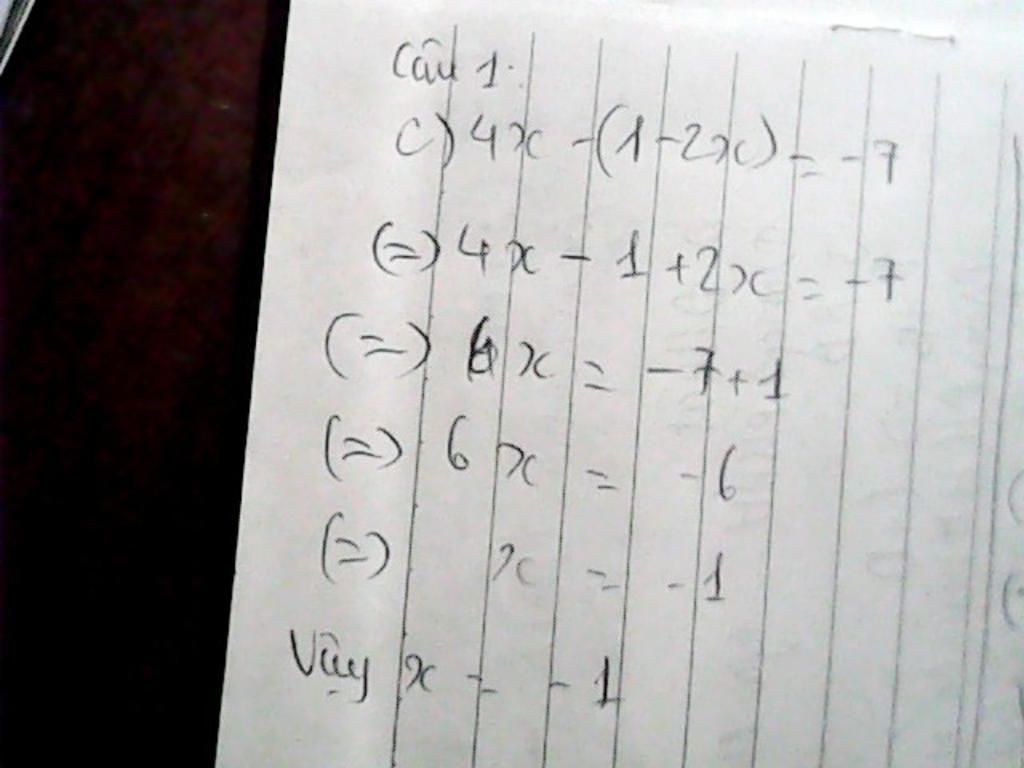 Câu 1.
c) 4x - (1 - 2x) = -7
(=) 4x - 1 + 2x = -7
(=) 6x = -7 + 1
(=) 6x = -6
(=) x = -1
Vậy x = -1